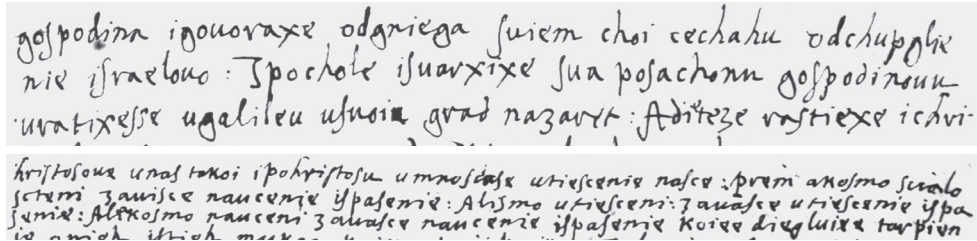 gospodina igouoraxe odgniega suiem choi cechahu odchupglie
nie israelouo : I pochole isuarxixe sua posachonu gospodinouu
uratixesse ugalileu usuoia grad nazaret : Aditeze rastiexe ichri-
hristosoua unas takoi ipohristosu umnosase utiescenie nasce : prem akosmo
sceni zauasce naucenje ispasenie : Alismo utiesceni : zauasce utiescenie ispa
senie : Alikosmo nauceni zauasce naucenie ispasenie koiee dieluiee tarpien